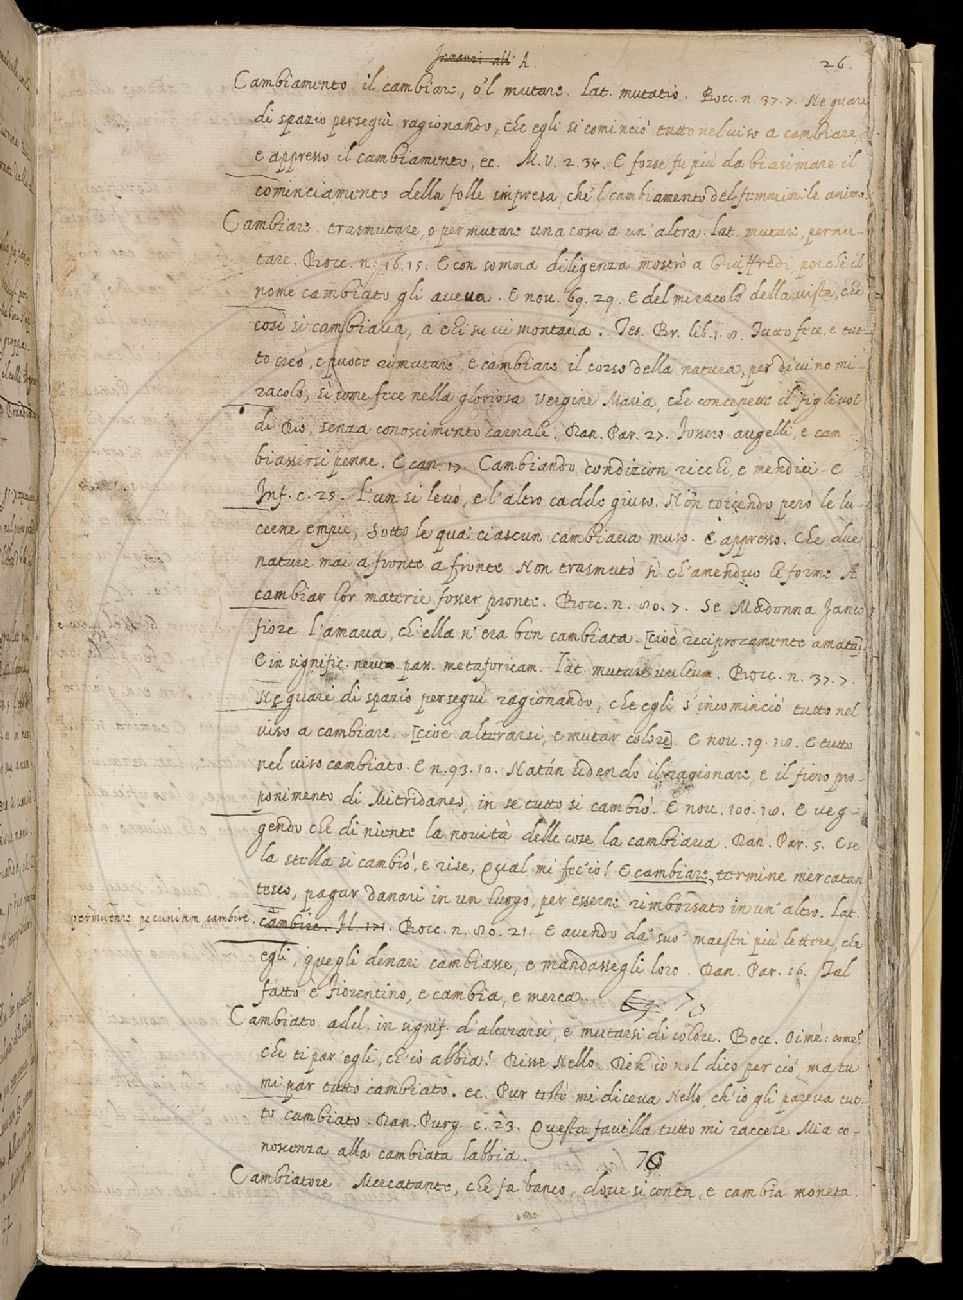 26.
Cambiamento il cambiare, o'l mutare. Lat. mutatio. Bocc. n. 37. 7. Ne guari
di spazio perseguì ragionando, che egli si cominciò tutto nel viso a cambiare,
e appresso il cambiamento, ec. M. V. 2. 34. E forse fu più da biasimare il
cominciamento della folle impresa, che'l cambiamento del femminile animo.
Cambiare. trasmutare, o permutare una cosa a un'altra. lat. mutare, permu-
tare. Bocc. n. 16. 15. E con somma diligenza mostrò a Giuffredi, perchè il
nome cambiato gli aveva. E nov. 69. 29. E del miracolo della vista, che
così si cambiava, a chi su vi montava. Tes. Br. lib. 1. 8. Tutto fece, e tut-
to creò, e puote rimutare, e cambiare il corso della natura, per divino mi-
racolo, sì come fece nella gloriosa Vergine Maria, che concepette il figliuol
di Dio, senza conoscimento carnale. Dan. Par. 27. Fossero augelli, e cam-
biassersi penne. E can. 17. Cambiando condizion ricchi, e mendici. E
Inf. c. 25. L'un si levò, e l'altro cadde giuso. Non torcendo però le lu-
cerne empie, Sotto le qua' ciascun cambiava muso. E appresso. Che due
nature mai a fronte a fronte Non trasmutò sì ch'amendue le forme A
cambiar lor materie fosser pronte. Bocc. n. 80. 7. Se Madonna Janco
fiore l'amava, ch'ella n'era ben cambiata. [cioè reciprocamente amata]
E in signific. neutr. pass. metaforicam. Lat. mutare vultum. Bocc. n. 37. 7.
Ne guari di spazio perseguì ragionando, che egli s'incominciò tutto nel
viso a cambiare. [cioè alterarsi, e mutar colore]. E nov. 19. 18. E tutto
nel viso cambiato. E n. 93. 10. Natán udendo il ragionare, e il fiero pro-
ponimento di Mitridanes, in se tutto si cambiò. E nov. 100. 18. E veg-
gendo che di niente la novità delle cose la cambiava. Dan. Par. 5. E se
la stella si cambiò, e rise, Qual mi fec'io! E cambiare, termine mercatan
tesco, pagar danari in un luogo, per essere rimborsato in un'altro. Lat.
permutare pecuniam, cambire. cambire. Bocc. n. 80. 21. E avendo da' suo' maestri più lettere, che
egli, quegli denari cambiasse, e mandassegli loro. Dan. Par. 16. Tal
fatto è fiorentino, e cambia, e merca.
Cambiato add. in signif. d'alterarsi, e mutarsi di colore. Bocc. Oimè: come?
che ti par egli, ch'io abbia? Disse Nello. Deh io nol dico per ciò, ma tu
mi par tutto cambiato. ec. Pur testè mi diceva Nello ch'io gli pareva tut-
to cambiato. Dan. Purg. c. 23. Questa favilla tutto mi raccese Mia co-
noscenza alla cambiata labbia.
76
Cambiatore Mercatante, che fa banco, dove si conta, e cambia moneta.